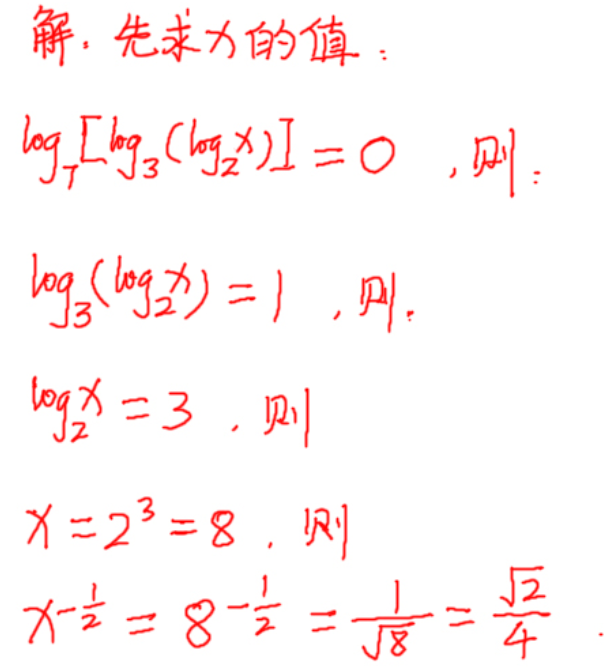 解:先求x的值:
log₇[log₃(log₂x)]=0,则:
log₃(log₂x)=1,则:
log₂x=3,则
x=2³=8,则
x^{-\frac{1}{2}}=8^{-\frac{1}{2}}=\frac{1}{\sqrt{8}}=\frac{\sqrt{2}}{4}.